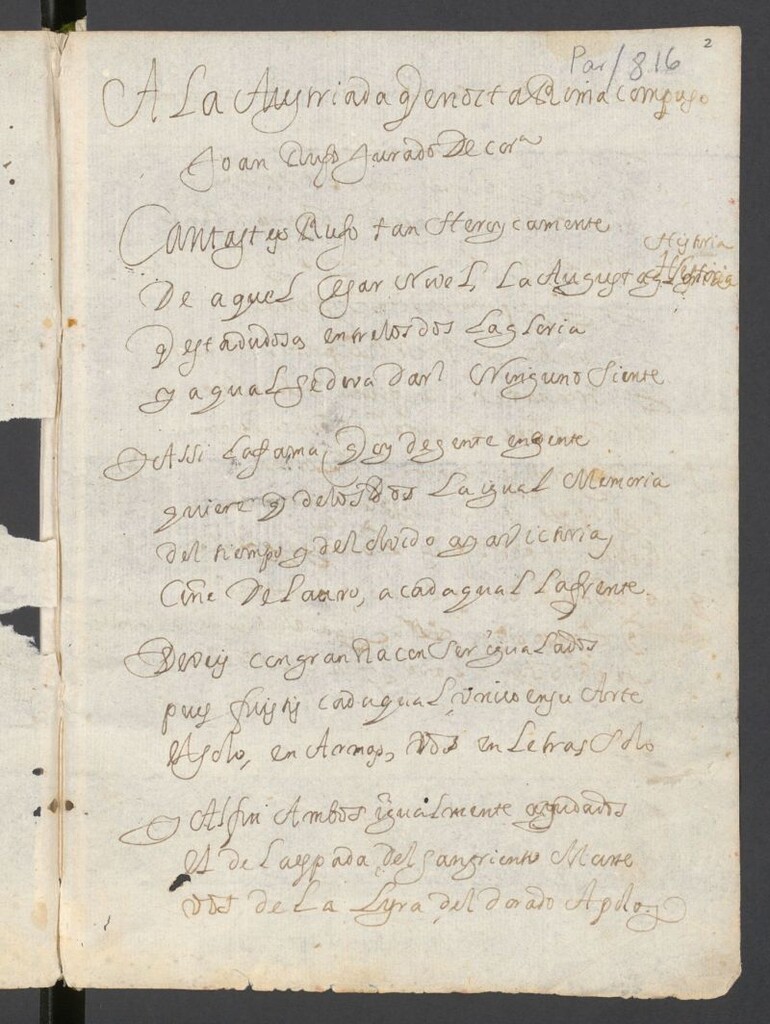 2
Par/816
A La Austriada q en octa Rima compuso
Joan Rufo Jurado De cor^a
Cantasteys Rufo tan Heroycamente
Hystoria
De aquel Cesar Novel, La Augusta Hystoria
q esta dudosa entre los dos La gloria
y a qual se deva dar Ninguno Siente
y Assi La fama, q oy de gente en gente
quiere q de los dos La igual Memoria
del tiempo y del olvido aya Victoria
Ciñe De Lauro, a cada qual La frente.
Deveys con gran Raçon Ser igualados
pues fuystis cada qual Unico en su Arte
El Solo, en Armas, vos en Letras Solo
y Al fin Ambos igualmente ayudados
El de La espada del sangriento Marte
vos de La Lyra del dorado Apolo.